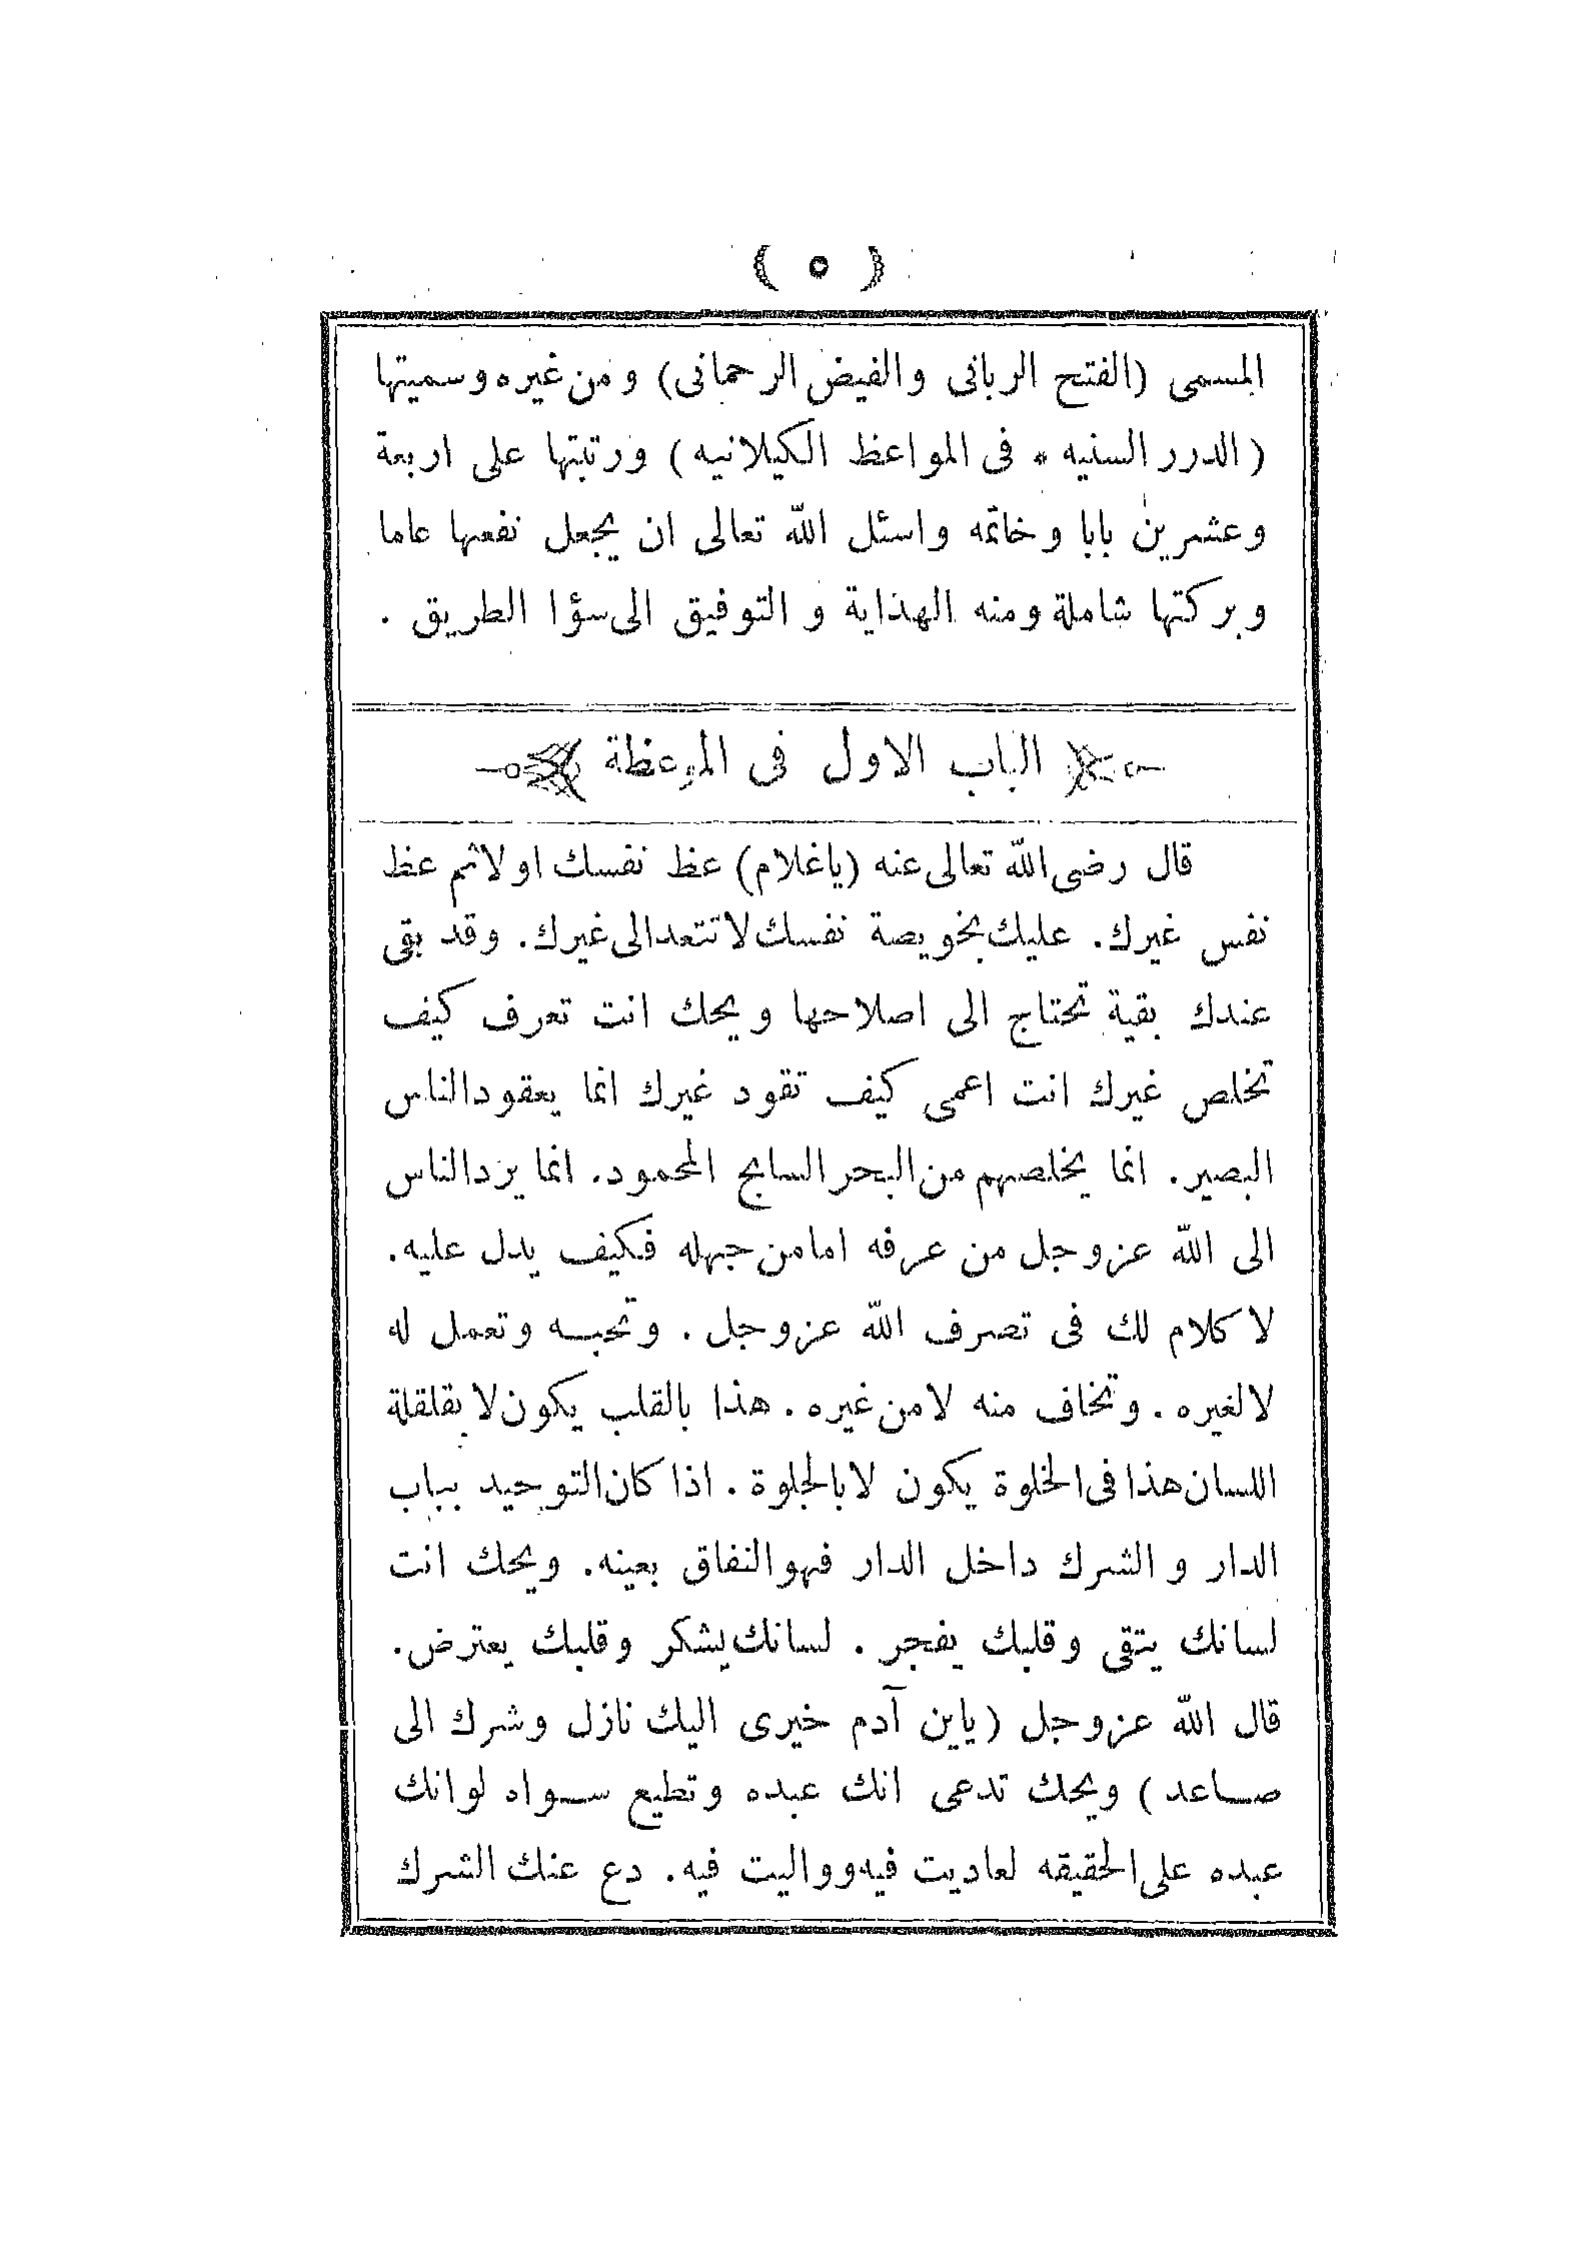 ( ٥ )
المسمى (الفتح الربانى والفيض الرحمانى) ومن غيره وسميتها
(الدرر السنيه * فى المواعظ الكيلانيه) ورتبتها على اربعة
وعشرين بابا وخاتمه واسئل الله تعالى ان يجعل نفعها عاما
وبركتها شاملة ومنه الهذاية و التوفيق الى سؤا الطريق .
الباب الاول فى الموعظة
قال رضى الله تعالى عنه (ياغلام) عظ نفسك اولا ثم عظ
نفس غيرك. عليك بخويصة نفسك لا تتعد الى غيرك. وقد بقى
عندك بقية تحتاج الى اصلاحها ويحك انت تعرف كيف
تخلص غيرك انت اعمى كيف تقود غيرك انما يعقود الناس
البصير. انما يخلصهم من البحر السابح المحمود. انما يزد الناس
الى الله عز وجل من عرفه اما من جهله فكيف يدل عليه.
لا كلام لك فى تصرف الله عز وجل . وتحبه وتعمل له
لالغيره . وتخاف منه لا من غيره . هذا بالقلب يكون لا بقلقلة
اللسان هذا فى الخلوة يكون لا بالجلوة . اذا كان التوحيد بباب
الدار و الشرك داخل الدار فهو النفاق بعينه. ويحك انت
لسانك يتقى وقلبك يفجر . لسانك يشكر وقلبك يعترض.
قال الله عز وجل (ياين آدم خيرى اليك نازل وشرك الى
صاعد) ويحك تدعى انك عبده وتطيع سواه لو انك
عبده على الحقيقه لعاديت فيه وواليت فيه. دع عنك الشرك